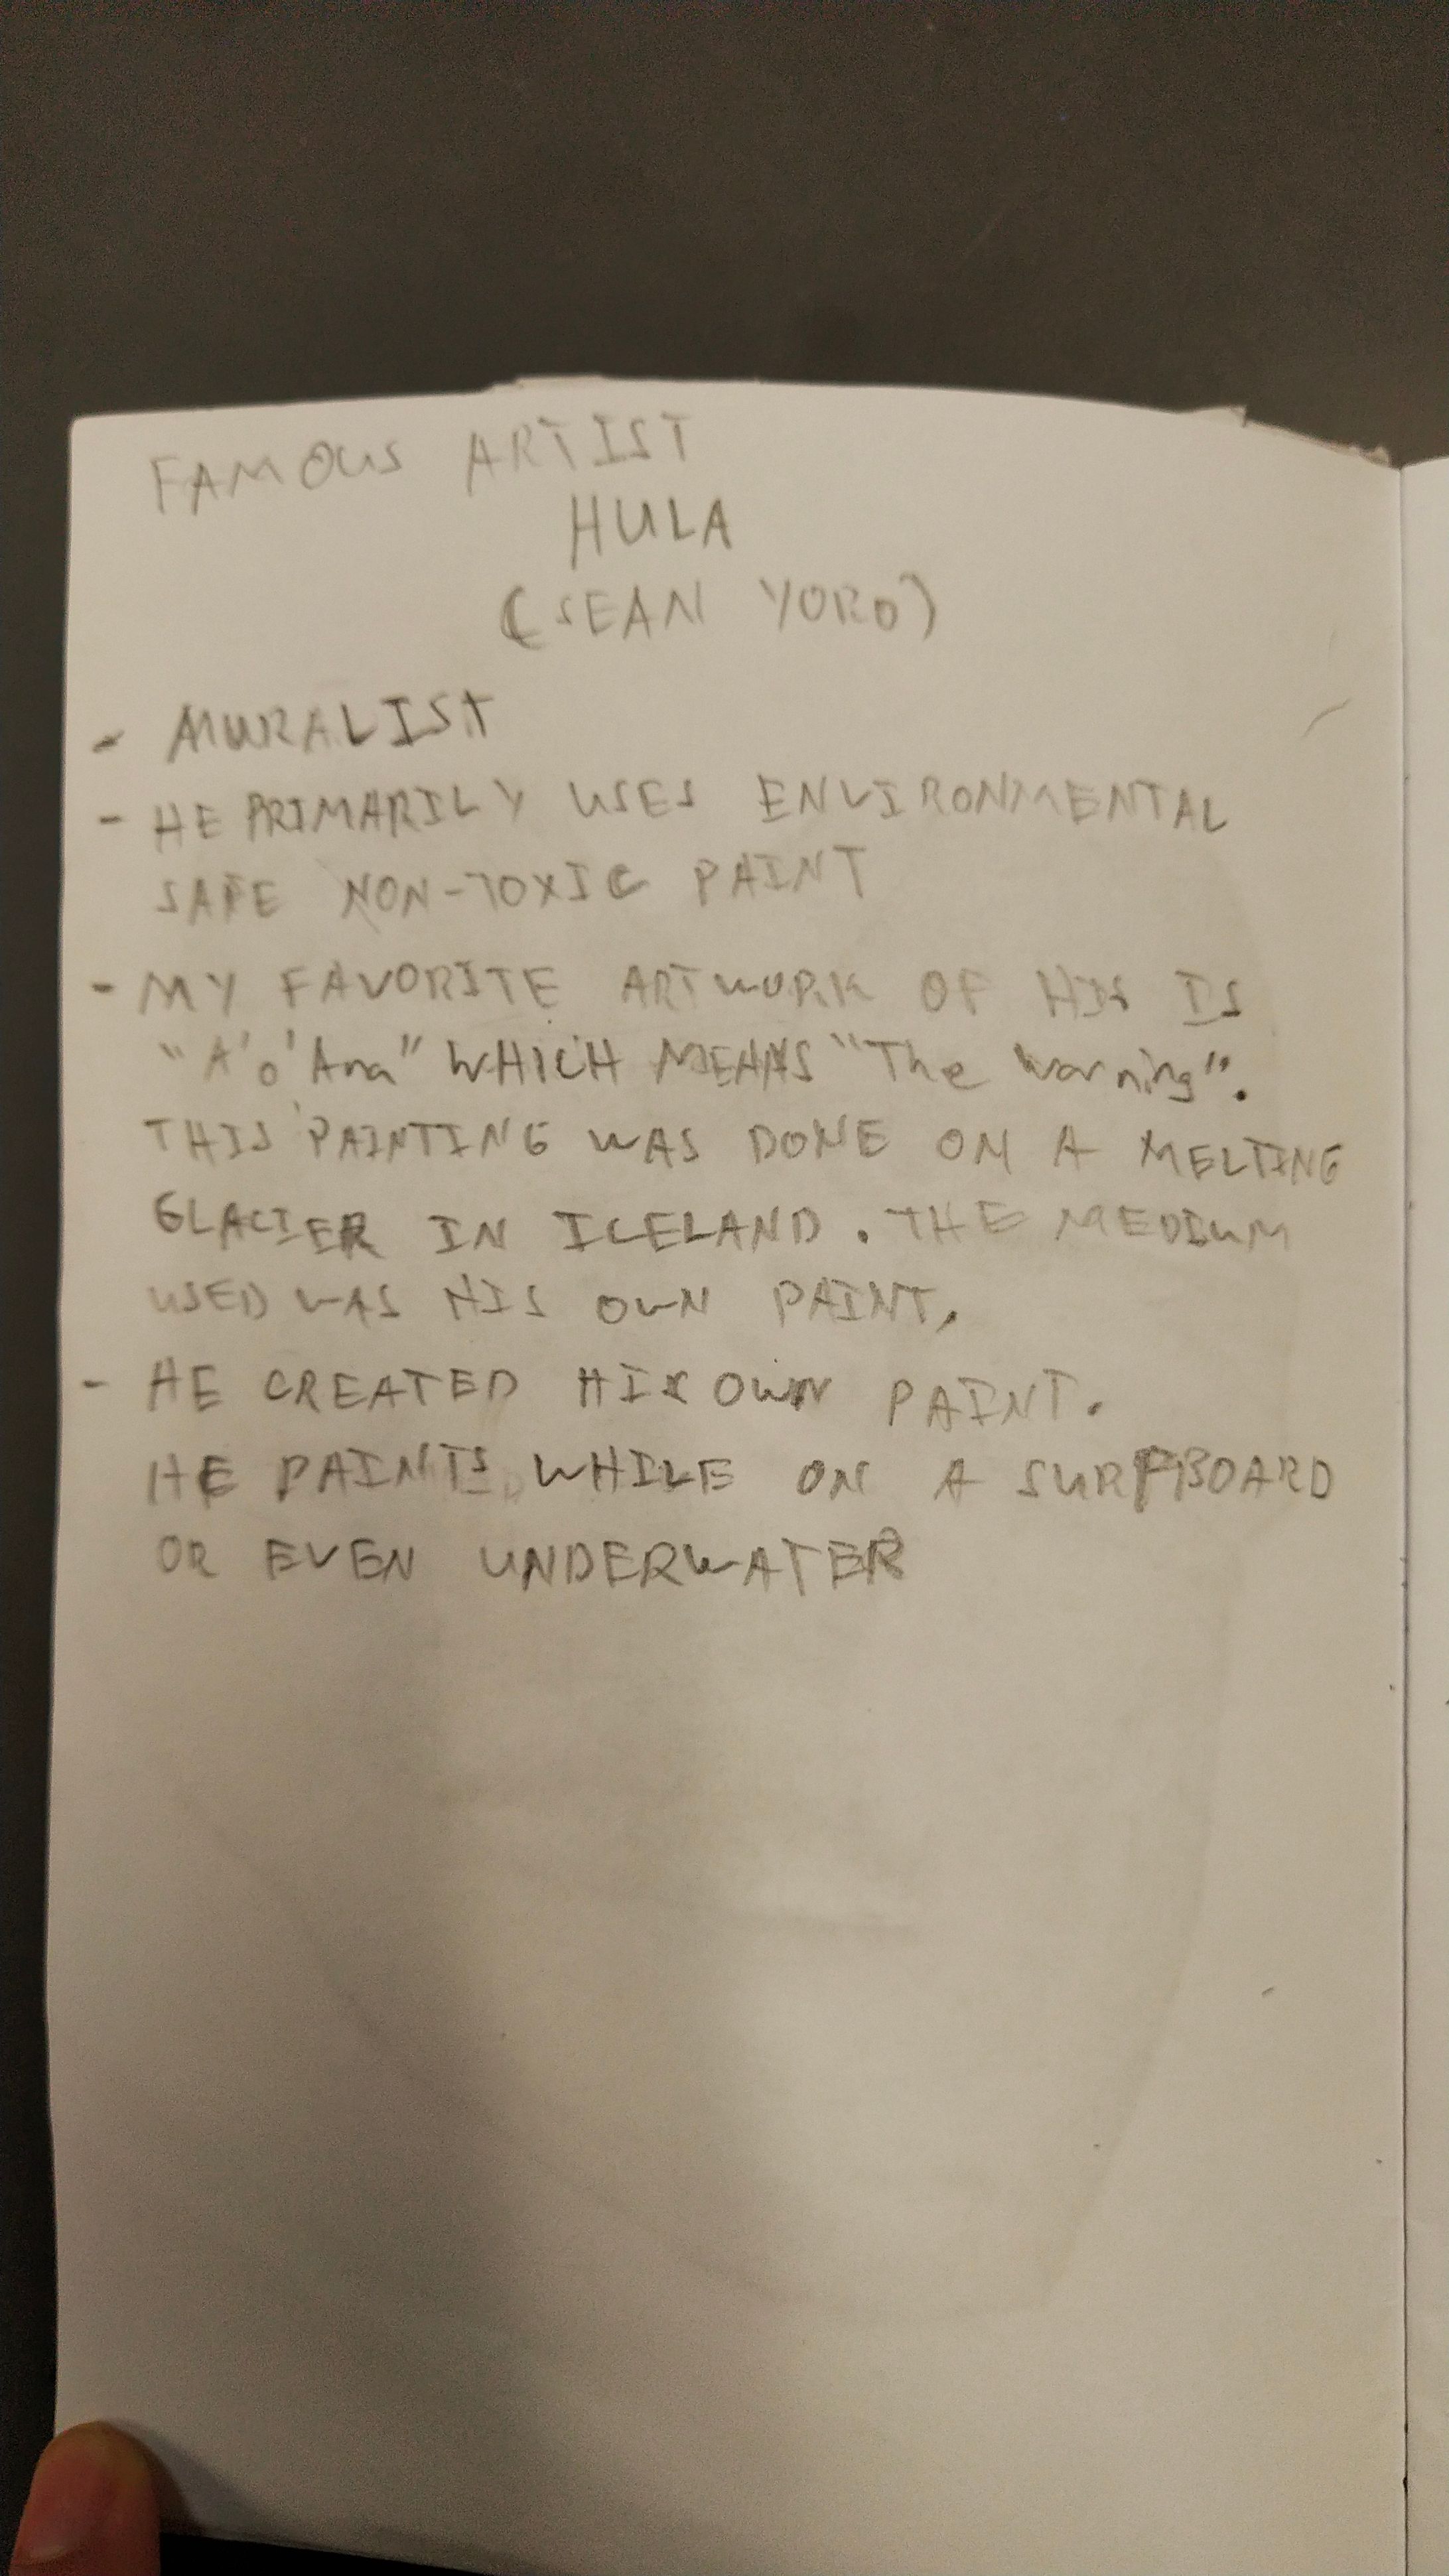 FAMOUS ARTIST
HULA
(SEAN YORO)
- MURALIST
- HE PRIMARILY USES ENVIRONMENTAL
SAFE NON-TOXIC PAINT
- MY FAVORITE ARTWORK OF HIS IS
"A'o'Ana" WHICH MEANS "The Warning".
THIS PAINTING WAS DONE ON A MELTING
GLACIER IN ICELAND. THE MEDIUM
USED WAS HIS OWN PAINT.
- HE CREATED HIS OWN PAINT.
HE PAINTS WHILE ON A SURFBOARD
OR EVEN UNDERWATER